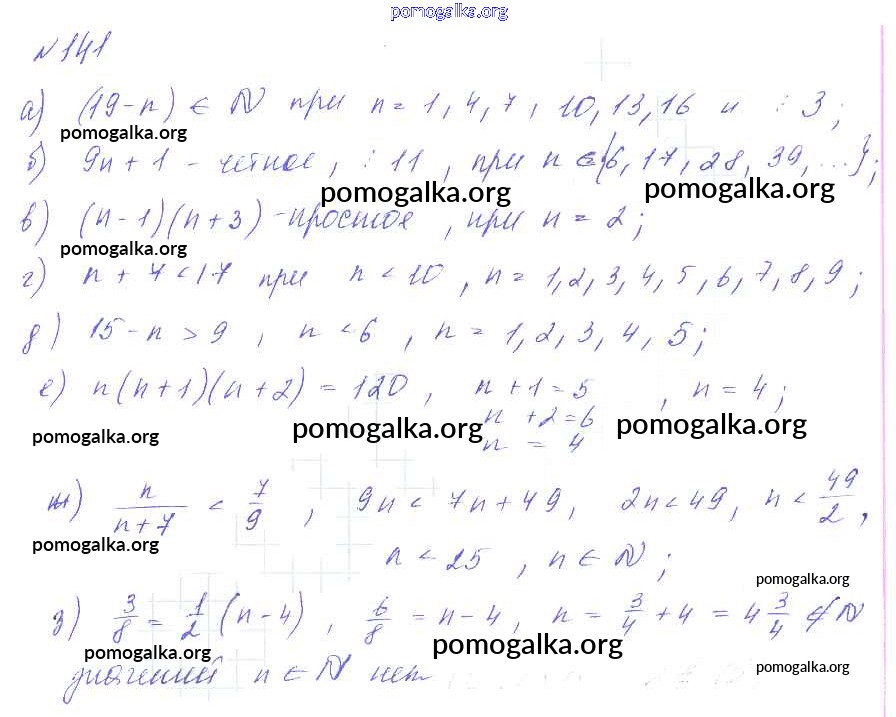 pomogalka.org
№141
а) (19-n) ∈ N при n = 1, 4, 7, 10, 13, 16 и ⋮ 3;
pomogalka.org
б) 9n + 1 - четное, ⋮ 11, при n ∈ {6, 17, 28, 39, ...};
pomogalka.org pomogalka.org
в) (n-1)(n+3) - простое, при n = 2;
pomogalka.org
г) n + 7 < 17 при n < 10, n = 1, 2, 3, 4, 5, 6, 7, 8, 9;
д) 15 - n > 9, n < 6, n = 1, 2, 3, 4, 5;
е) n(n+1)(n+2) = 120, n + 1 = 5, n = 4;
n + 2 = 6
pomogalka.org pomogalka.org pomogalka.org
n = 4
ж) n/(n+7) < 7/9, 9n < 7n + 49, 2n < 49, n < 49/2,
pomogalka.org
n < 25, n ∈ N;
pomogalka.org
з) 3/8 = 1/2 (n-4), 6/8 = n - 4, n = 3/4 + 4 = 4 3/4 ∉ N
pomogalka.org pomogalka.org
значений n ∈ N нет
pomogalka.org